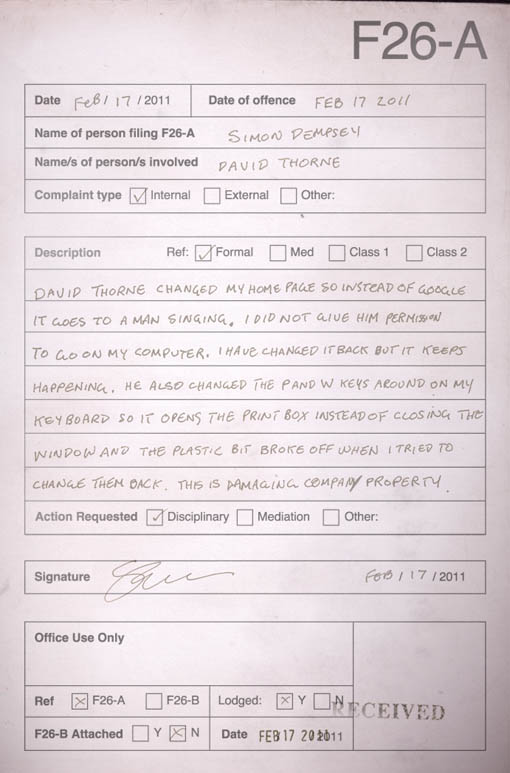 F26-A
Date FeB / 17 / 2011 Date of offence FEB 17 2011
Name of person filing F26-A SIMON DEMPSEY
Name/s of person/s involved DAVID THORNE
Complaint type Internal External Other:
Description Ref: Formal Med Class 1 Class 2
DAVID THORNE CHANGED MY HOME PAGE SO INSTEAD OF GOOGLE
IT GOES TO A MAN SINGING. I DID NOT GIVE HIM PERMISSION
TO GO ON MY COMPUTER. I HAVE CHANGED IT BACK BUT IT KEEPS
HAPPENING. HE ALSO CHANGED THE P AND W KEYS AROUND ON MY
KEYBOARD SO IT OPENS THE PRINT BOX INSTEAD OF CLOSING THE
WINDOW AND THE PLASTIC BIT BROKE OFF WHEN I TRIED TO
CHANGE THEM BACK. THIS IS DAMAGING COMPANY PROPERTY.
Action Requested Disciplinary Mediation Other:
Signature FEB / 17 / 2011
Office Use Only
Ref F26-A F26-B Lodged: Y N
RECEIVED
F26-B Attached Y N Date FEB 17 2011